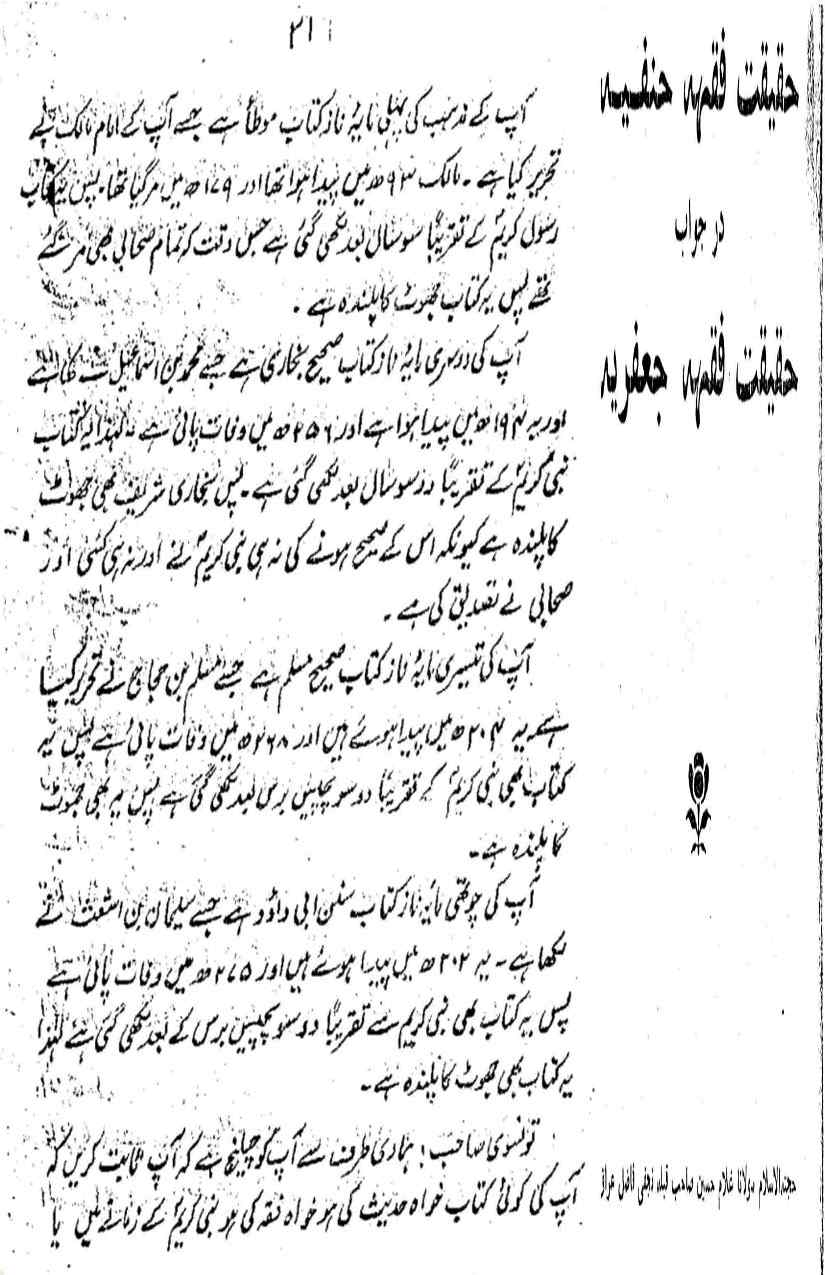 حقیقت فقہہ حنفیہ
در جواب
حقیقت فقہہ جعفریہ
حجتہ الاسلام مولانا غلام حسین صاحب قبلہ نجفی فاضل عراق
۲۱
آپ کے مذہب کی پہلی مایۂ ناز کتاب موطأ ہے جسے آپ کے امام مالک نے
تحریر کیا ہے ۔ مالک ۹۳ھ میں پیدا ہوا تھا اور ۱۷۹ھ میں مر گیا تھا۔ پس یہ کتاب
رسول کریمؐ کے تقریباً سو سال بعد لکھی گئی ہے جس وقت کہ تمام صحابی بھی مر گئے
تھے پس یہ کتاب جھوٹ کا پلندہ ہے ۔
آپ کی دوسری مایۂ ناز کتاب صحیح بخاری ہے جسے محمد بن اسماعیل نے لکھا ہے
اور یہ ۱۹۴ھ میں پیدا ہوا ہے اور ۲۵۶ھ میں وفات پائی ہے ۔ لہذا یہ کتاب
نبی کریمؐ کے تقریباً دو سو سال بعد لکھی گئی ہے ۔ پس بخاری شریف بھی جھوٹ
کا پلندہ ہے کیونکہ اس کے صحیح ہونے کی نہ ہی نبی کریمؐ نے اور نہ ہی کسی اور
صحابی نے تصدیق کی ہے ۔
آپ کی تیسری مایۂ ناز کتاب صحیح مسلم ہے جسے مسلم بن حجاج نے تحریر کیا
ہے یہ ۲۰۴ھ میں پیدا ہوئے ہیں اور ۲۶۸ھ میں وفات پائی ہے پس یہ
کتاب بھی نبی کریمؐ کے تقریباً دو سو پچیس برس بعد لکھی گئی ہے پس یہ بھی جھوٹ
کا پلندہ ہے ۔
آپ کی چوتھی مایۂ ناز کتاب سنن ابی داؤد ہے جسے سلیمان بن اشعث نے
لکھا ہے ۔ یہ ۲۰۲ھ میں پیدا ہوئے ہیں اور ۲۷۵ھ میں وفات پائی ہے
پس یہ کتاب بھی نبی کریم سے تقریباً دو سو پچیس برس کے بعد لکھی گئی ہے لہذا
یہ کتاب بھی جھوٹ کا پلندہ ہے ۔
تونسوی صاحب ! ہماری طرف سے آپ کو چیلنج ہے کہ آپ ثابت کریں کہ
آپ کی کوئی کتاب خواہ حدیث کی ہو خواہ فقہ کی ہو نبی کریمؐ کے زمانے میں یا